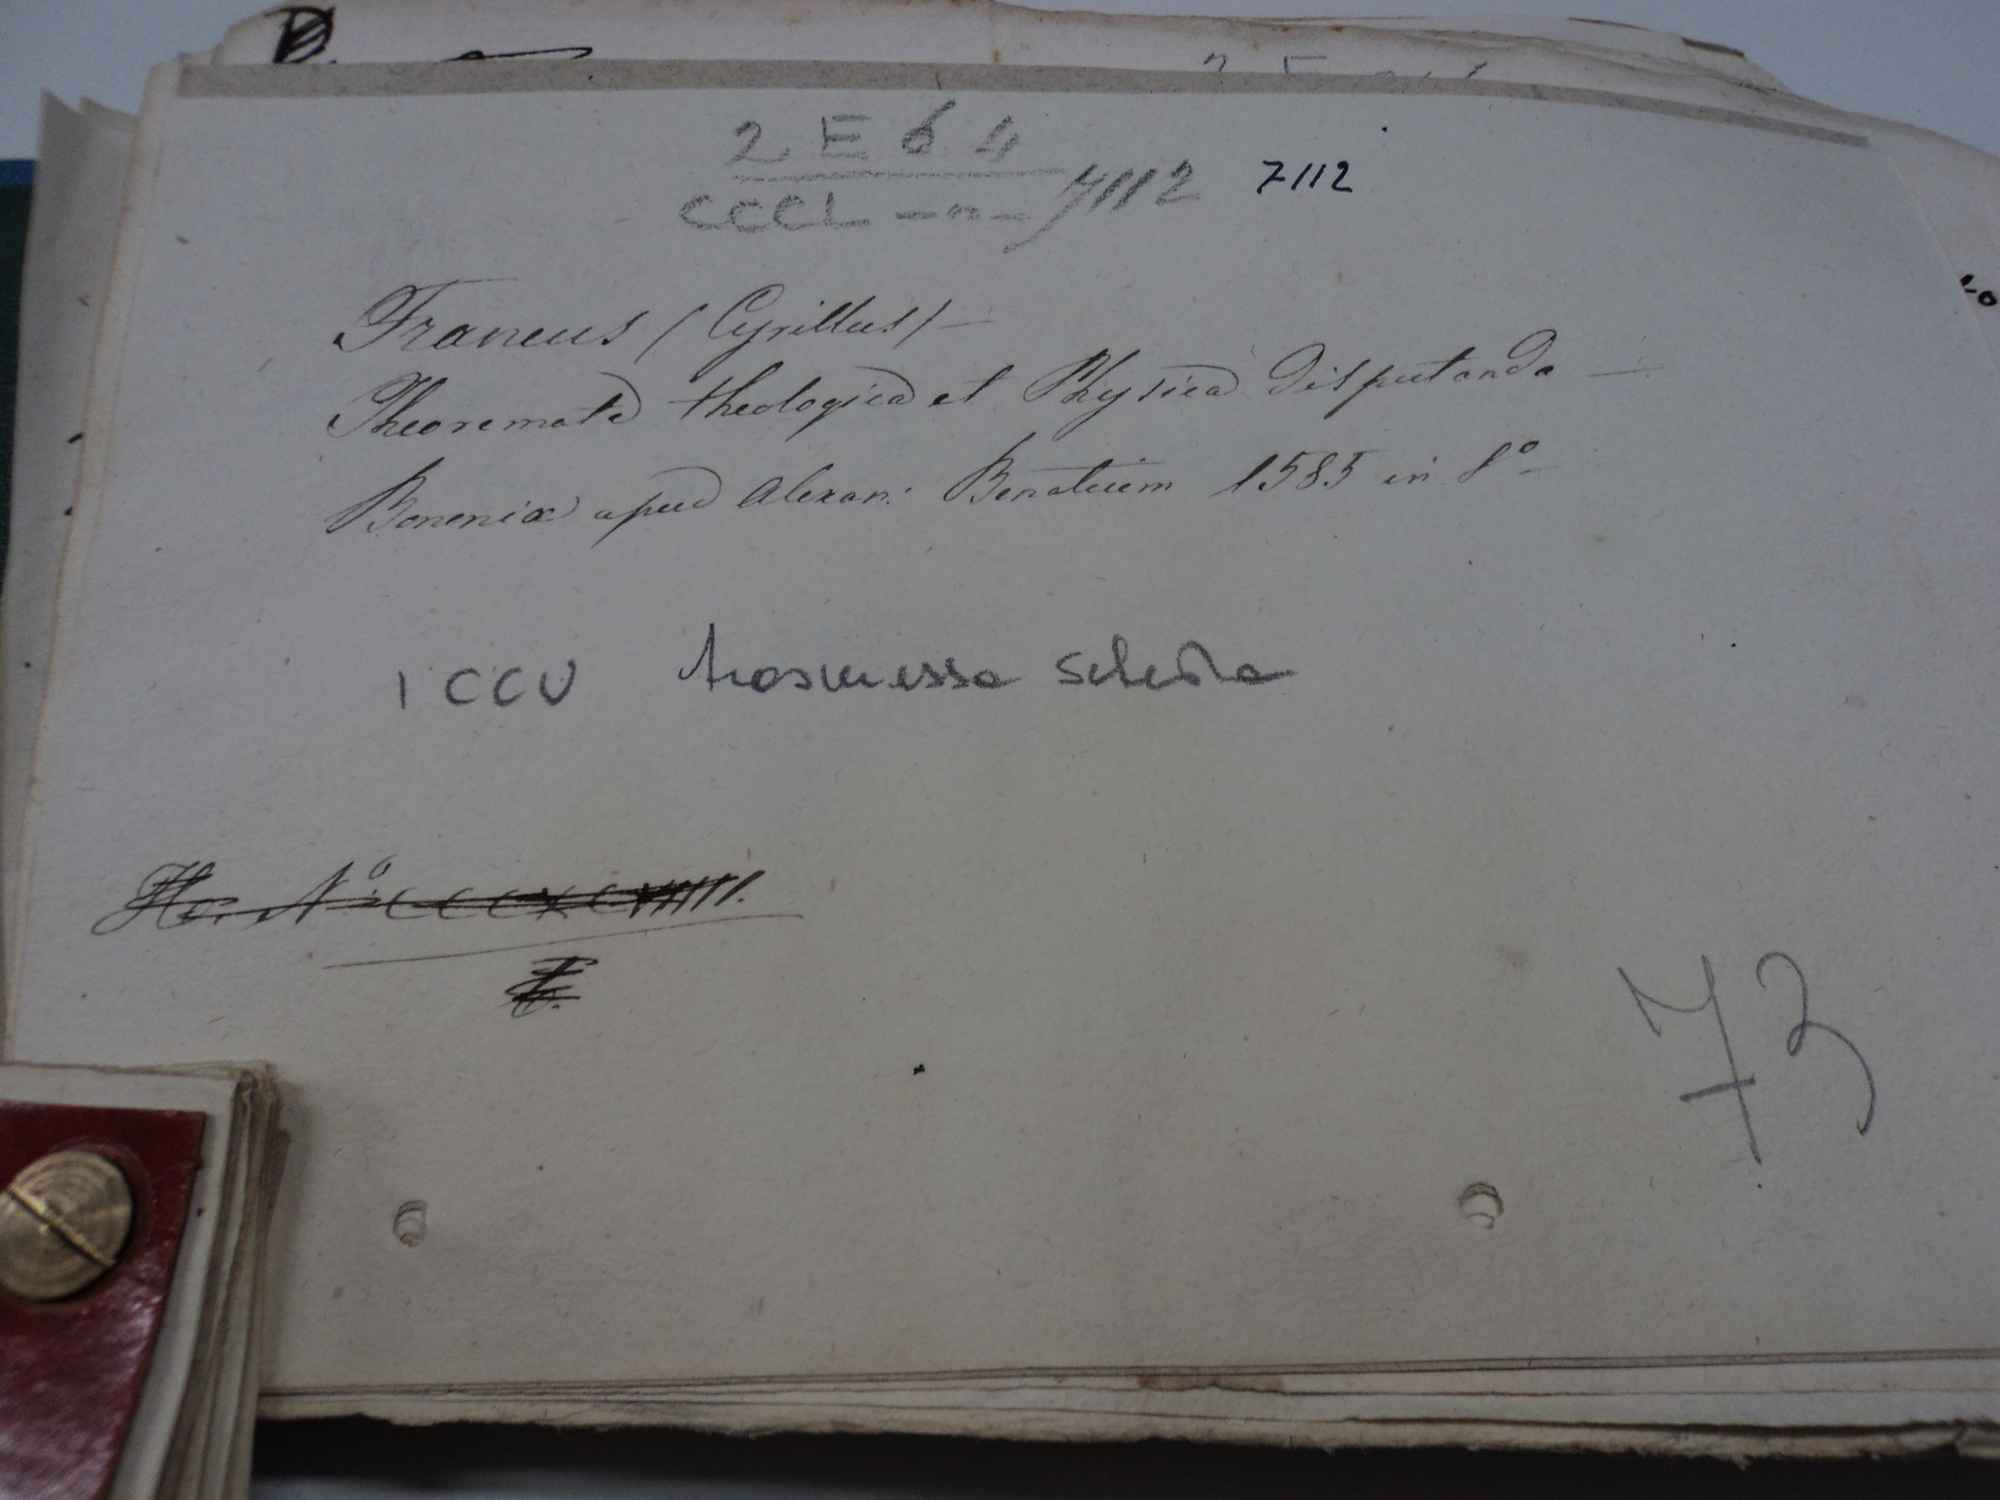 2 E 6 4
CCCL - n - 7112 7112
Francus (Cyrillus) —
Theoremata theologica et Physica disputanda —
Bononiæ apud Alexan: Benatium 1585 in 8º
ICCU trasmessa scheda
Nº CCCXCVIIII.
73